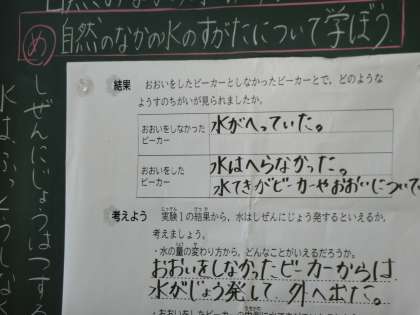 め 自然のなかの水のすがたについて学ぼう
しぜんにじょうはつする
水は、ふっとうしなく
結果 おおいをしたビーカーとしなかったビーカーとで、どのような
ようすのちがいが見られましたか。
おおいをしなかった
ビーカー
水がへっていた。
おおいをした
ビーカー
水はへらなかった。
水てきがビーカーやおおいについて
考えよう 実験1の結果から、水はしぜんにじょう発するといえるか、
考えましょう。
・水の量の変わり方から、どんなことがいえるだろうか。
おおいをしなかったビーカーからは
水がじょう発して、外へ出た。